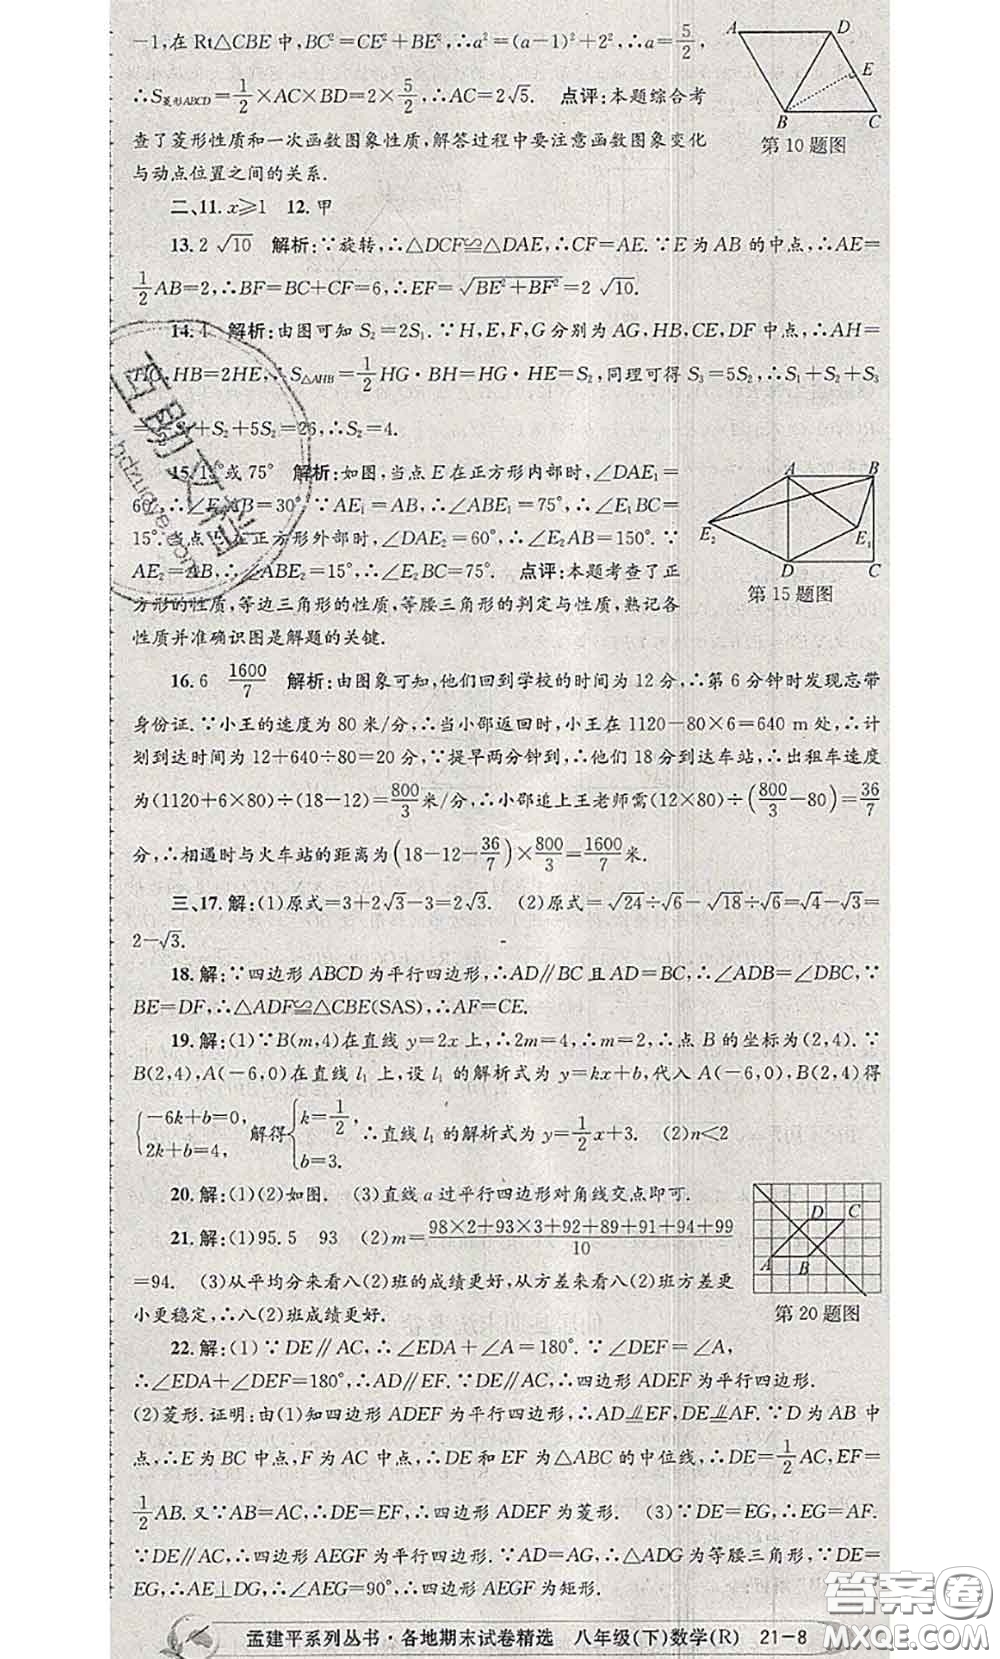 -1,在 Rt△CBE 中,BC²=CE²+BE²,∴a²=(a-1)²+2²,∴a=5/2,
∴S菱形ABCD=1/2×AC×BD=2×5/2,∴AC=2√5. 点评:本题综合考
查了菱形性质和一次函数图象性质,解答过程中要注意函数图象变化
与动点位置之间的关系.
A D E B C
第10题图
二、11.x≥1 12.甲
13.2√10 解析:∵旋转,∴△DCF≌△DAE,∴CF=AE.∵E为AB的中点,∴AE=
1/2AB=2,∴BF=BC+CF=6,∴EF=√(BE²+BF²)=2√10.
14.4 解析:由图可知 S₂=2S₁.∵H,E,F,G分别为AG,HB,CE,DF中点,∴AH=
HG,HB=2HE,∴S△AHB=1/2HG·BH=HG·HE=S₂,同理可得 S₃=5S₂,∴S₁+S₂+S₃
S₂+5S₂=26,∴S₂=4.
15.15°或75° 解析:如图,当点E在正方形内部时,∠DAE₁=
60°,∴∠E₁AB=30°.∵AE₁=AB,∴∠ABE₁=75°,∴∠E₁BC=
15°.当点E在正方形外部时,∠DAE₂=60°,∴∠E₂AB=150°.∵
AE₂=AB,∴∠ABE₂=15°,∴∠E₂BC=75°. 点评:本题考查了正
方形的性质,等边三角形的性质,等腰三角形的判定与性质,熟记各
性质并准确识图是解题的关键.
A B E₂ E₁ D C
第15题图
16.6 1600/7 解析:由图象可知,他们回到学校的时间为12分,∴第6分钟时发现忘带
身份证.∵小王的速度为80米/分,∴当小邵返回时,小王在1120-80×6=640 m处,∴计
划到达时间为12+640÷80=20分,∵提早两分钟到,∴他们18分到达车站,∴出租车速度
为(1120+6×80)÷(18-12)=800/3米/分,∴小邵追上王老师需(12×80)÷(800/3-80)=36/7
分,∴相遇时与火车站的距离为(18-12-36/7)×800/3=1600/7米.
三、17.解:(1)原式=3+2√3-3=2√3. (2)原式=√24÷√6-√18÷√6=√4-√3=
2-√3.
18.解:∵四边形ABCD为平行四边形,∴AD∥BC且AD=BC,∴∠ADB=∠DBC,∵
BE=DF,∴△ADF≌△CBE(SAS),∴AF=CE.
19.解:(1)∵B(m,4)在直线y=2x上,∴2m=4,∴m=2,∴点B的坐标为(2,4).∵
B(2,4),A(-6,0)在直线l₁上,设l₁的解析式为y=kx+b,代入A(-6,0),B(2,4)得
{-6k+b=0, 2k+b=4, 解得{k=1/2, b=3. ∴直线l₁的解析式为y=1/2x+3. (2)n<2
20.解:(1)(2)如图. (3)直线a过平行四边形对角线交点即可.
21.解:(1)95.5 93 (2)m=(98×2+93×3+92+89+91+94+99)/10
=94. (3)从平均分来看八(2)班的成绩更好,从方差来看八(2)班方差更
小更稳定,∴八(2)班成绩更好.
D C A B
第20题图
22.解:(1)∵DE∥AC,∴∠EDA+∠A=180°.∵∠DEF=∠A,
∴∠EDA+∠DEF=180°,∴AD∥EF.∵DE∥AC,∴四边形ADEF为平行四边形.
(2)菱形.证明:由(1)知四边形ADEF为平行四边形,∴AD⫽EF,DE⫽AF.∵D为AB中
点,∴E为BC中点,F为AC中点,∴DE和EF为△ABC的中位线,∴DE=1/2AC,EF=
1/2AB.又∵AB=AC,∴DE=EF,∴四边形ADEF为菱形. (3)∵DE=EG,∴EG=AF.
∵DE∥AC,∴四边形AEGF为平行四边形.∵AD=AG,∴△ADG为等腰三角形,∵DE=
EG,∴AE⊥DG,∴∠AEG=90°,∴四边形AEGF为矩形.
孟建平系列丛书·各地期末试卷精选 八年级(下)数学(R) 21-8
答案圈
MXQE.COM